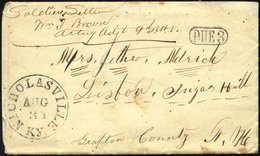 Soldiers Letter
Wm. J. Brown
Acting Adjt 9 N.H.V.
DUE 3
Mrs. Aldrich
Lisbon, Sugar Hill
Grafton County N. H
NICHOLASVILLE KY.
AUG
31